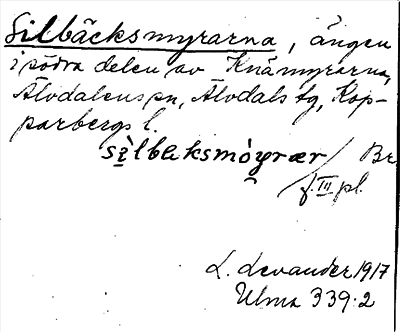 Silbäcksmyrarna, ängen
i södra delen av Knämyrarna,
Älvdalens sn, Älvdals tg, Kop-
parbergs l.
sìlbɛksmòyrær / Br
f. III pl.
L. Levander 1917
Ulma 339:2